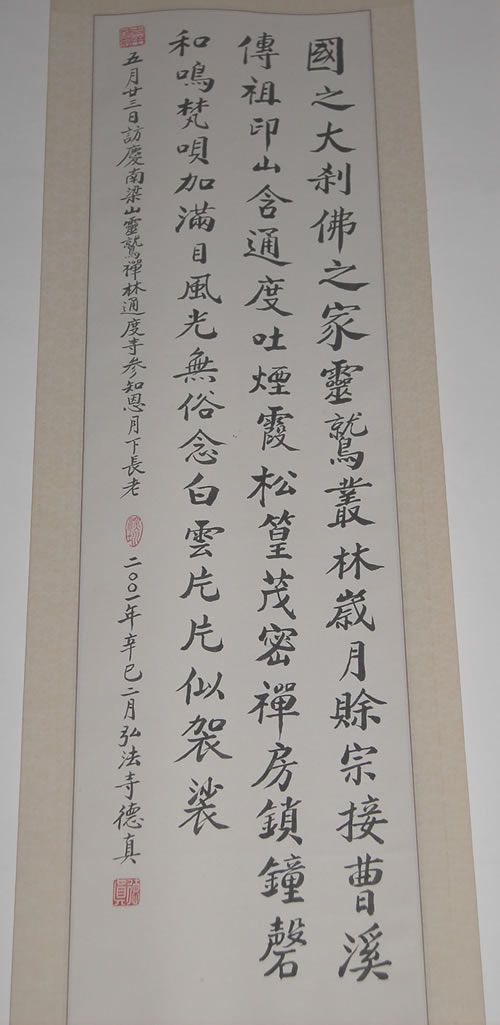 國之大刹佛之家靈鷲叢林歲月賒宗接曹溪
傳祖印山含通度吐煙霞松篁茂密禪房鎖鐘磬
和鳴梵唄加滿目風光無俗念白雲片片似袈裟
五月廿三日訪慶南梁山靈鷲禪林通度寺參知恩月下長老 二〇〇一年辛巳二月弘法寺德真